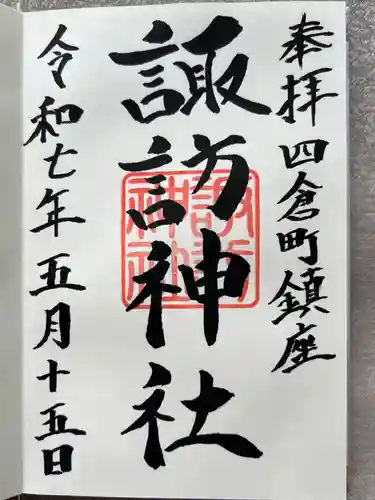 奉拝 四倉町鎮座
諏訪神社
諏訪神社
令和七年五月十五日